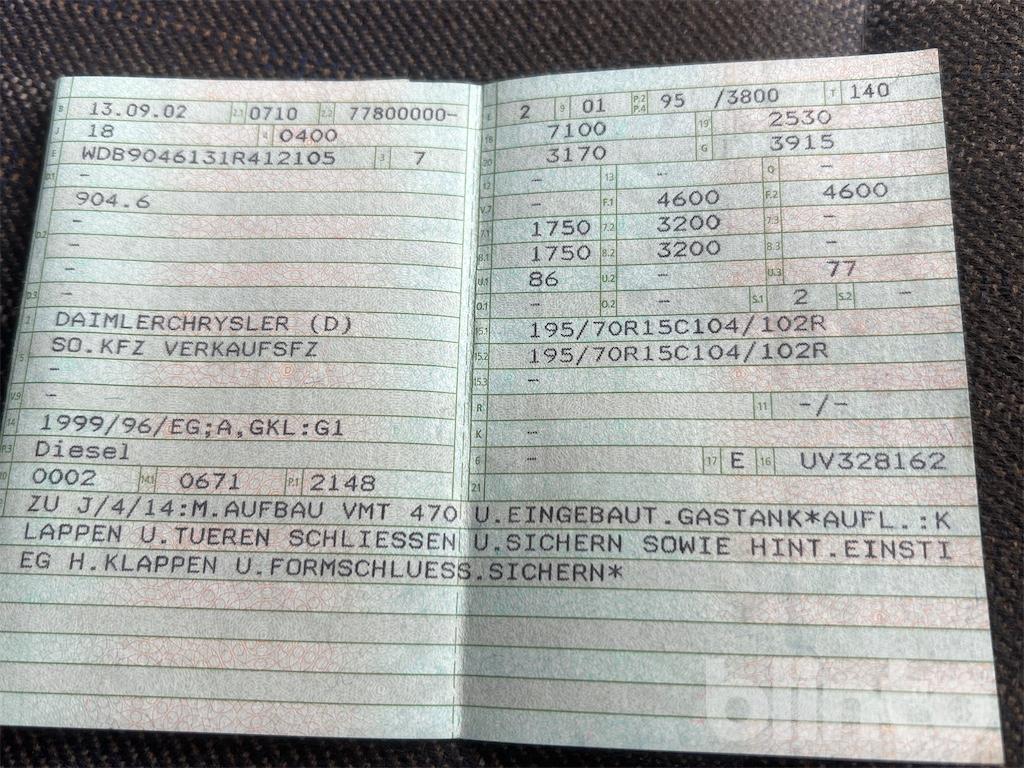 B 13.09.02 2.1 0710 2.2 77800000-
J 18 4 0400
E WDB9046131R412105 3 7
D.1 -
904.6
D.2 -
-
-
D.3 -
2 DAIMLERCHRYSLER (D)
5 SO.KFZ VERKAUFSFZ
-
V.9 -
14 1999/96/EG;A,GKL:G1
P.3 Diesel
10 0002 14.1 0671 P.1 2148
L 2 9 01 P.2 P.4 95 /3800 T 140
18 7100 19 2530
20 3170 G 3915
12 - 13 - Q -
V.7 - F.1 4600 F.2 4600
7.1 1750 7.2 3200 7.3 -
8.1 1750 8.2 3200 8.3 -
U.1 86 U.2 - U.3 77
O.1 - O.2 - S.1 2 S.2 -
15.1 195/70R15C104/102R
15.2 195/70R15C104/102R
15.3 -
R 11 -/-
K -
6 - 17 E 16 UV328162
21
ZU J/4/14:M.AUFBAU VMT 470 U.EINGEBAUT.GASTANK*AUFL.:K
LAPPEN U.TUEREN SCHLIESSEN U.SICHERN SOWIE HINT.EINSTI
EG H.KLAPPEN U.FORMSCHLUESS.SICHERN*
blinto